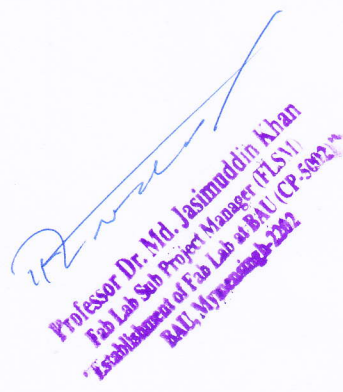 Professor Dr. Md. Jasimuddin Khan
Fab Lab Sub Project Manager (FLSM)
"Establishment of Fab Lab at BAU (CP-5092)"
BAU, Mymensingh-2202